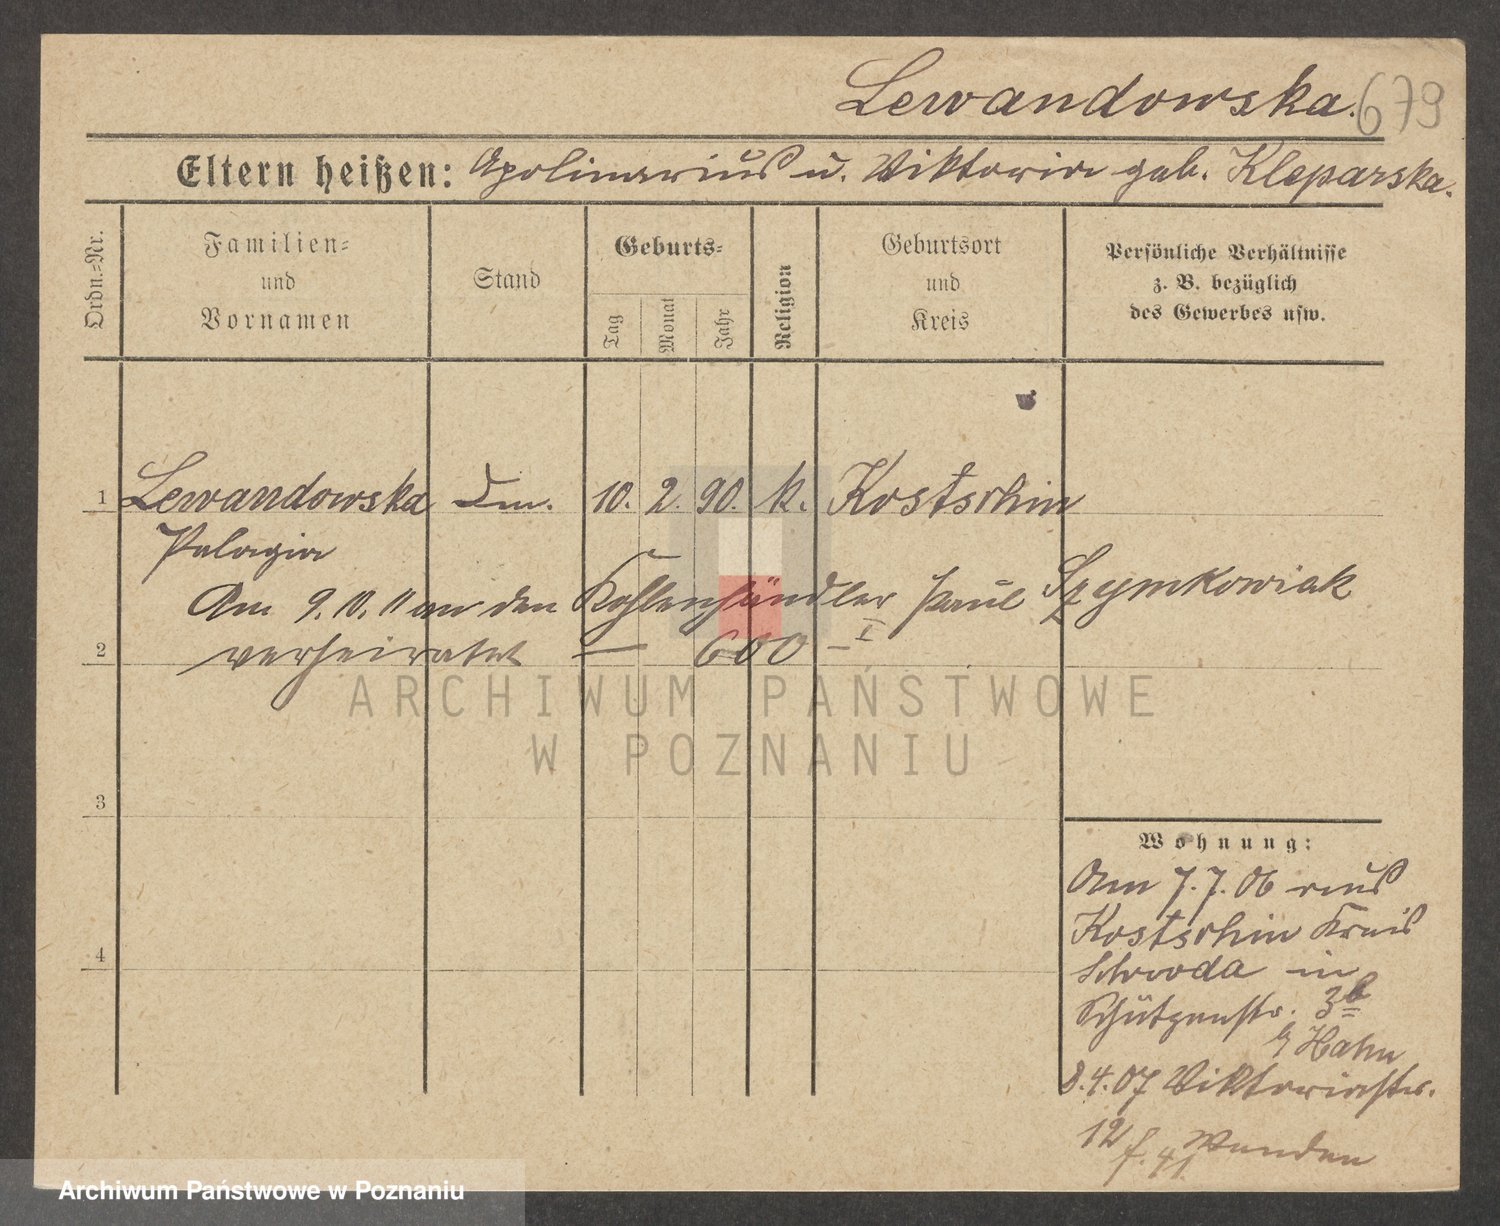 Lewandowska. 679
Eltern heißen: Apolinarius u. Viktoria geb. Kleparska.
Ordn.=Nr.
Familien=
und
Vornamen
Stand
Geburts=
Tag
Monat
Jahr
Religion
Geburtsort
und
Kreis
Persönliche Verhältnisse
z. B. bezüglich
des Gewerbes usw.
1 Lewandowska 10. 2. 90. k. Kostschin
Pelagia
Am 9. 10. 11 an den Kohlenhändler Paul Szymkowiak
2 verheiratet — 600 — I
3
4
Wohnung:
Am 7. 7. 06 aus
Kostschin Kreis
Schroda in
Schützenstr. 3b
b/ Hahn
8. 4. 07 Viktoriastr.
12
ARCHIWUM PAŃSTWOWE
W POZNANIU
Archiwum Państwowe w Poznaniu